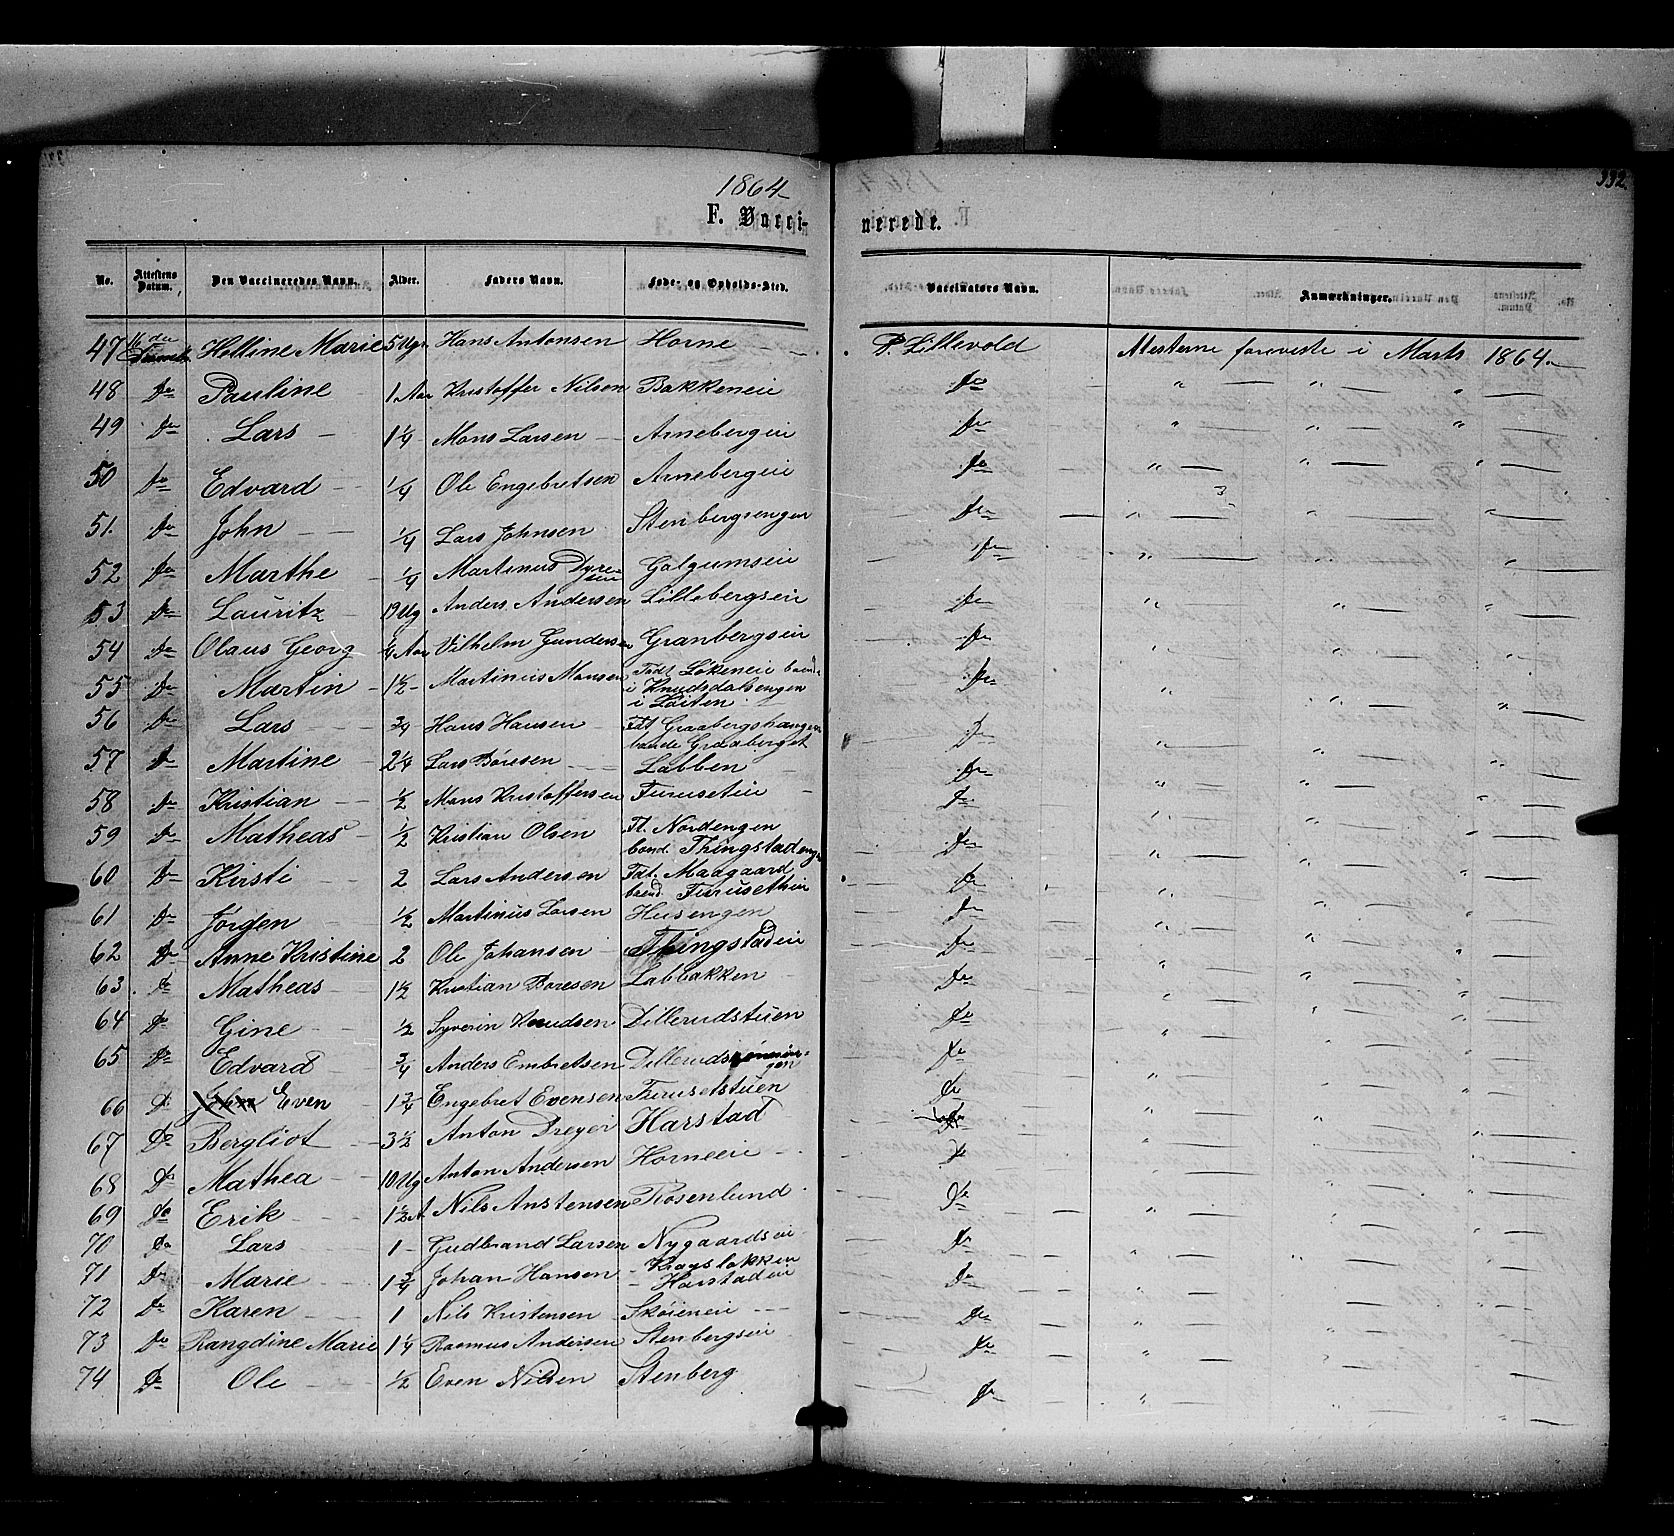 1864
332
F. Vacci-
nerede.
No. Attestens Datum. Den Vaccineredes Navn. Alder. Faders Navn. Føde- og Opholds-Sted. Vaccinators Navn. Anmærkninger.
47 Helline Marie 5 Ugr Hans Antonsen Horne P. Lillevold Atesterne foreviste i Marts 1864
48 Do Pauline 1 Aar Kristoffer Nilsen Bakkeneie Do " " "
49 Do Lars 1 1/4 Mons Larsen Arnebergeie Do " " "
50 Do Edvard 1/4 Ole Engebretsen Arnebergeie Do " " "
51. Do John 1/4 Lars Johnsen Stenbergsengen Do " " "
52 Do Marthe 1/4 Martinus Dyresen Galgumseie Do " " "
53 Do Lauritz 19 Ug Anders Andersen Lillebergseie Do " " "
54 Do Olaus Georg 4 Aar Vilhelm Gundersen Granbergseie Do " " "
55 Do Martin 1 1/2 Martinus Monsen Født Løkeneie boende
i Knudsdalsengen
i Løiten Do " " "
56 Do Lars 3/4 Hans Hansen Fdt Graabergshaugen
boende Graaberget Do " " "
57 Do Martine 2 1/4 Lars Børesen Labben Do " " "
58 Do Kristian 1/2 Mons Kristoffersen Furuseteie Do " " "
59 Do Matheas 1/2 Kristian Olsen Ft. Nordengen
boend. Thingstadenge Do " " "
60 Do Kirsti 2 Lars Andersen Fdt. Madgaard
boend. Furusetheie Do " " "
61 Do Jørgen 1/2 Martinus Larsen Husengen Do " " "
62 Do Anne Kristine 2 Ole Johansen Thingstadeie Do " " "
63 Do Matheas 1 1/2 Kristian Børesen Labbakken Do " " "
64 Do Gine 1/2 Syverin Knudsen Dillerudstuen Do " " "
65 Do Edvard 3/4 Anders Embretsen Do " " "
66 Do Even 1 3/4 Engebret Evensen Furusetstuen Do " " "
67 Do Bergliot 3 1/2 Anton Dreyer Harstad Do " " "
68 Do Mathea 10 Ug Anton Andersen Horneeie Do " " "
69 Do Erik 1 1/2 A Nils Anstensen Rosenlund Do " " "
70 Do Lars 1 Gudbrand Larsen Nygaardseie Do " " "
71 Do Marie 1 3/4 Johan Hansen Kragsløkken
Harstadeie Do " " "
72 Do Karen 1 Nils Kristensen Skøieneie Do " " "
73 Do Rangdine Marie 1 1/4 Rasmus Andersen Stenbergseie Do " " "
74 Do Ole 1/2 Even Nilsen Stenberg Do " " "